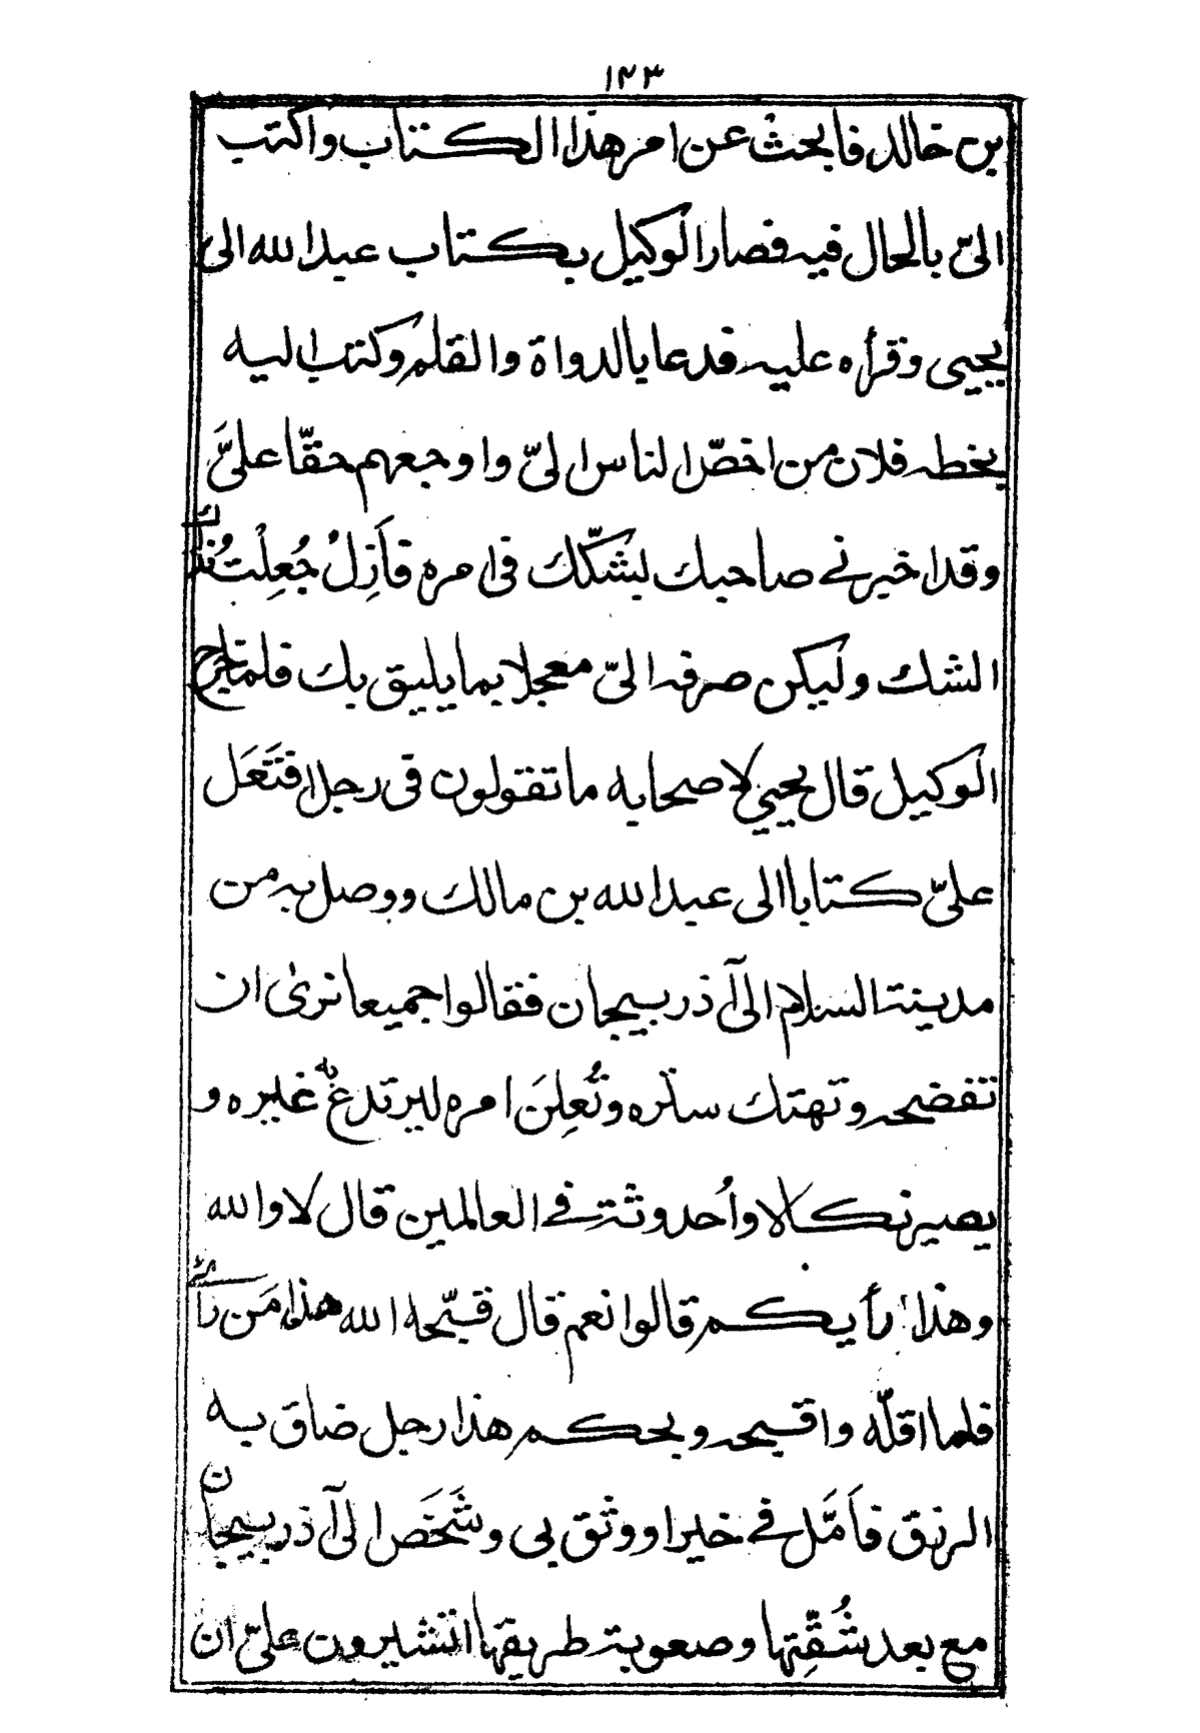 ١٤٣
بن خالد فابحث عن امر هذا الكتاب واكتب
الىّ بالحال فيه فصار الوكيل بكتاب عبد الله الى
يحيى وقرأه عليه فدعا بالدواة والقلم وكتب اليه
بخطه فلان من اخصّ الناس الىّ واوجبهم حقّا علىَّ
وقد اخبرنى صاحبك بشكّك فى امره فَأَزِلْ جُعِلْتُ فداك
الشك وليكن صرفه الىّ معجلا بما يليق بك فلما خرج
الوكيل قال يحيي لاصحابه ما تقولون فى رجل افتَعَل
علىّ كتابا الى عبد الله بن مالك ووصل به من
مدينة السلام الى آذربيجان فقالوا جميعا نرىٰ ان
تفضحه وتهتك ستره وتُعلِنَ امره ليرتدعَ به غيره و
يصير نكالا واُحدوثة فى العالمين قال لا والله
وهذا رأيكم قالوا نعم قال قبّحه الله هذا مَن رأى
فلما اقلّه واقبحه ويحكم هذا رجل ضاق به
الرزق فاَمَّل فى خيرا ووثق بى وشَخَصَ الى آذربيجان
مع بعد شُقِّتِها وصعوبة طريقها اتشيرون علىّ ان